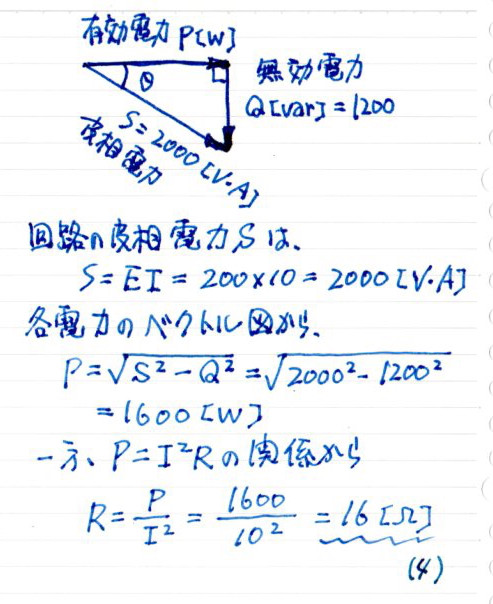 有効電力 P[W]
θ
無効電力
Q[var] = 1200
S = 2000 [V·A]
皮相電力
回路の皮相電力Sは、
S = EI = 200×10 = 2000 [V·A]
各電力のベクトル図から、
P = √S² − Q² = √2000² − 1200²
= 1600 [W]
一方、P = I²R の関係から
R = P/I² = 1600/10² = 16 [Ω]
(4)